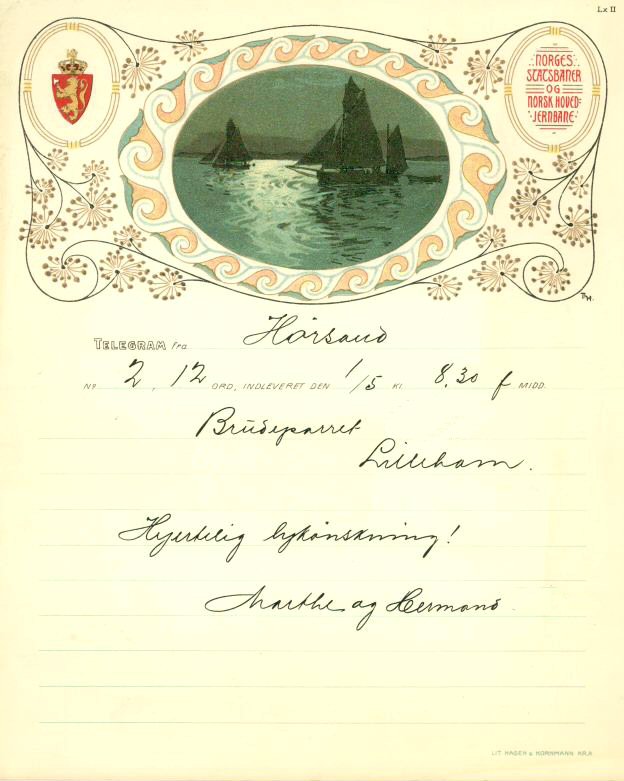 Lx II
NORGES
STATSBANER
OG
NORSK HOVED-
JERNBANE
TH.
TELEGRAM fra Hörsand
Nº 2, 12 ORD, INDLEVERET DEN 1/5 KL. 8.30 f MIDD.
Brüdeparret
Lilleham.
Hjertelig lykönskning!
Marthe og Hermand.
LIT. HAGEN & KORNMANN KR.A